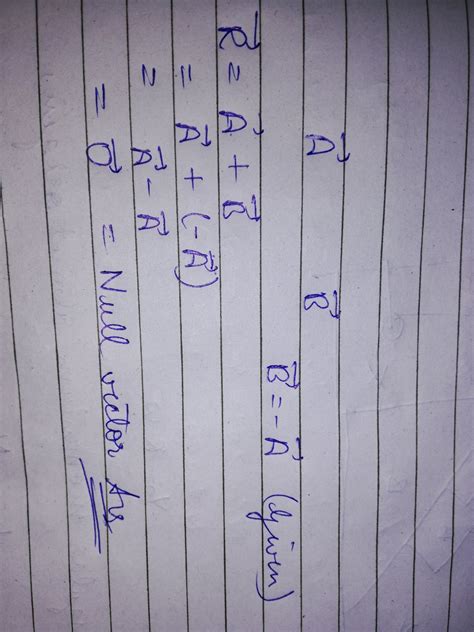 A⃗ B⃗
B⃗ = -A⃗ (given)
R⃗ = A⃗ + B⃗
= A⃗ + (-A⃗)
= A⃗ - A⃗
= O⃗ = Null vector Ans